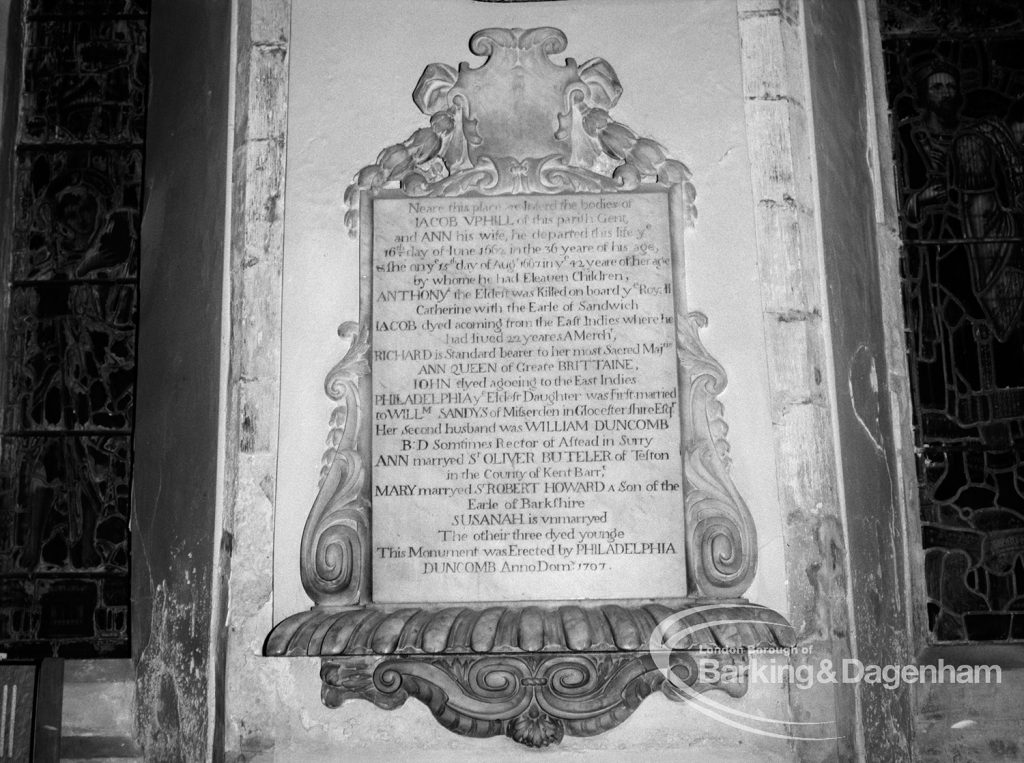 Neare this place are Interd the bodies of
IACOB VPHILL of this parish Gent,
and ANN his wife, he departed this life yᵉ
16ᵗʰ day of Iune 1662 in the 36 yeare of his age,
& she on yᵉ 15ᵗʰ day of Augˢᵗ 1667 in yᵉ 42 yeare of her age
by whome he had Eleaven Children,
ANTHONY the Eldest was Killed on board yᵉ Royall
Catherine with the Earle of Sandwich
IACOB dyed acoming from the East Indies where he
had lived 22 yeares A Merchᵗ,
RICHARD is Standard bearer to her most Sacred Majᵗⁱᵉ
ANN QUEEN of Greate BRITTAINE,
IOHN dyed agoeing to the East Indies
PHILADELPHIA yᵉ Eldest Daughter was first married
to WILLᴹ SANDYS of Misserden in Glocestershire Esqʳ
Her second husband was WILLIAM DUNCOMB
B:D Somtimes Rector of Astead in Surry
ANN marryed Sʳ OLIVER BUTELER of Teston
in the County of Kent Barrᵗ
MARY marryed Sʳ ROBERT HOWARD A Son of the
Earle of Barkshire
SUSANAH is vnmarryed
The otheir three dyed younge
This Monument was Erected by PHILADELPHIA
DUNCOMB Anno Domⁱ 1707.
London Borough of
Barking & Dagenham